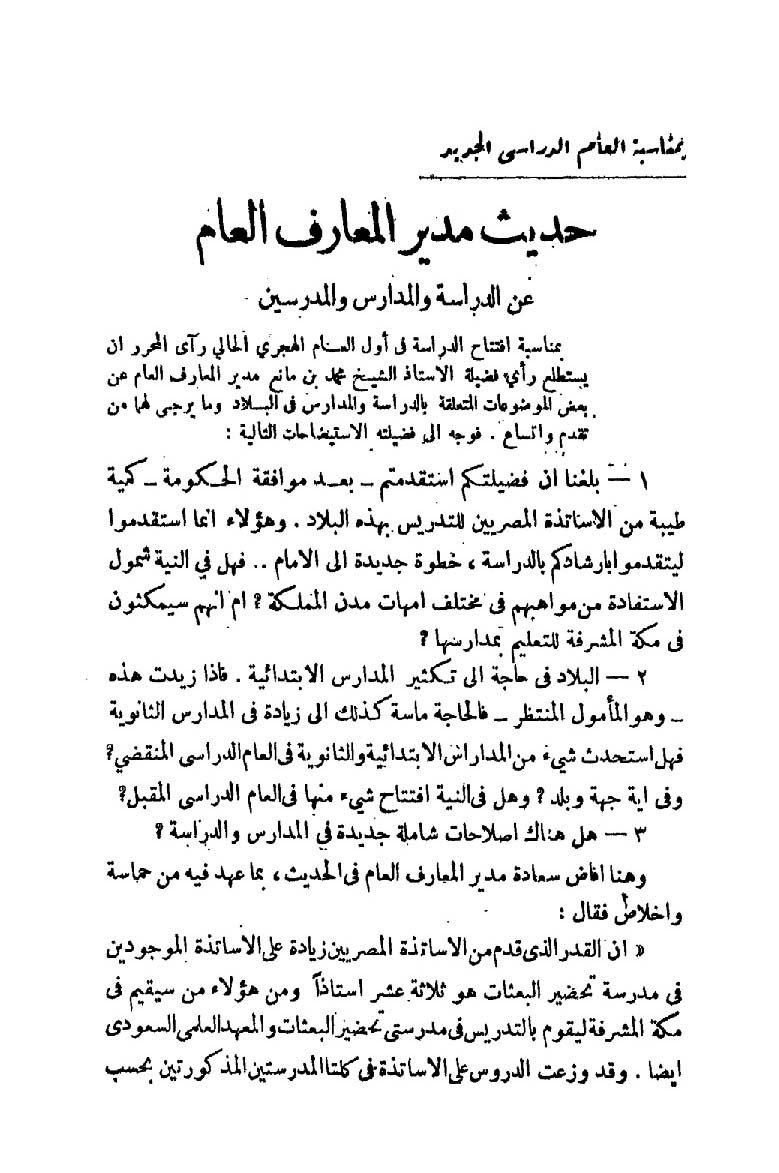 بمناسبة العام الدراسى الجديد
حديث مدير المعارف العام
عن الدراسة والمدارس والمدرسين
بمناسبة افتتاح الدراسة فى أول العام الهجري الحالي رآى المحرر ان
يستطلع رأي فضيلة الاستاذ الشيخ محمد بن مانع مدير المعارف العام عن
بعض الموضوعات المتعلقة بالدراسة والمدارس فى البلاد وما يرجى لهما من
تقدم واتساع . فوجه الى فضيلته الاستيضاحات التالية :
١ — بلغنا ان فضيلتكم استقدمتم – بعد موافقة الحكومة – كمية
طيبة من الاساتذة المصريين للتدريس بهذه البلاد . وهؤلاء انما استقدموا
ليتقدموا بارشادكم بالدراسة ، خطوة جديدة الى الامام .. فهل في النية شمول
الاستفادة من مواهبهم فى مختلف امهات مدن المملكة ؟ ام انهم سيمكثون
فى مكة المشرفة للتعليم بمدارسها ؟
٢ — البلاد فى حاجة الى تكثير المدارس الابتدائية . فاذا زيدت هذه
– وهو المأمول المنتظر – فالحاجة ماسة كذلك الى زيادة فى المدارس الثانوية
فهل استحدث شيء من المدارس الابتدائية والثانوية فى العام الدراسى المنقضي؟
وفى اية جهة وبلد ؟ وهل فى النية افتتاح شيء منها فى العام الدراسى المقبل؟
٣ — هل هناك اصلاحات شاملة جديدة في المدارس والدراسة ؟
وهنا افاض سعادة مدير المعارف العام فى الحديث ، بما عهد فيه من حماسة
واخلاص فقال :
« ان القدر الذى قدم من الاساتذة المصريين زيادة على الاساتذة الموجودين
فى مدرسة تحضير البعثات هو ثلاثة عشر استاذاً ومن هؤلاء من سيقيم فى
مكة المشرفة ليقوم بالتدريس فى مدرستى تحضير البعثات والمعهد العلمى السعودى
ايضا . وقد وزعت الدروس على الاساتذة فى كلتا المدرستين المذكورتين بحسب